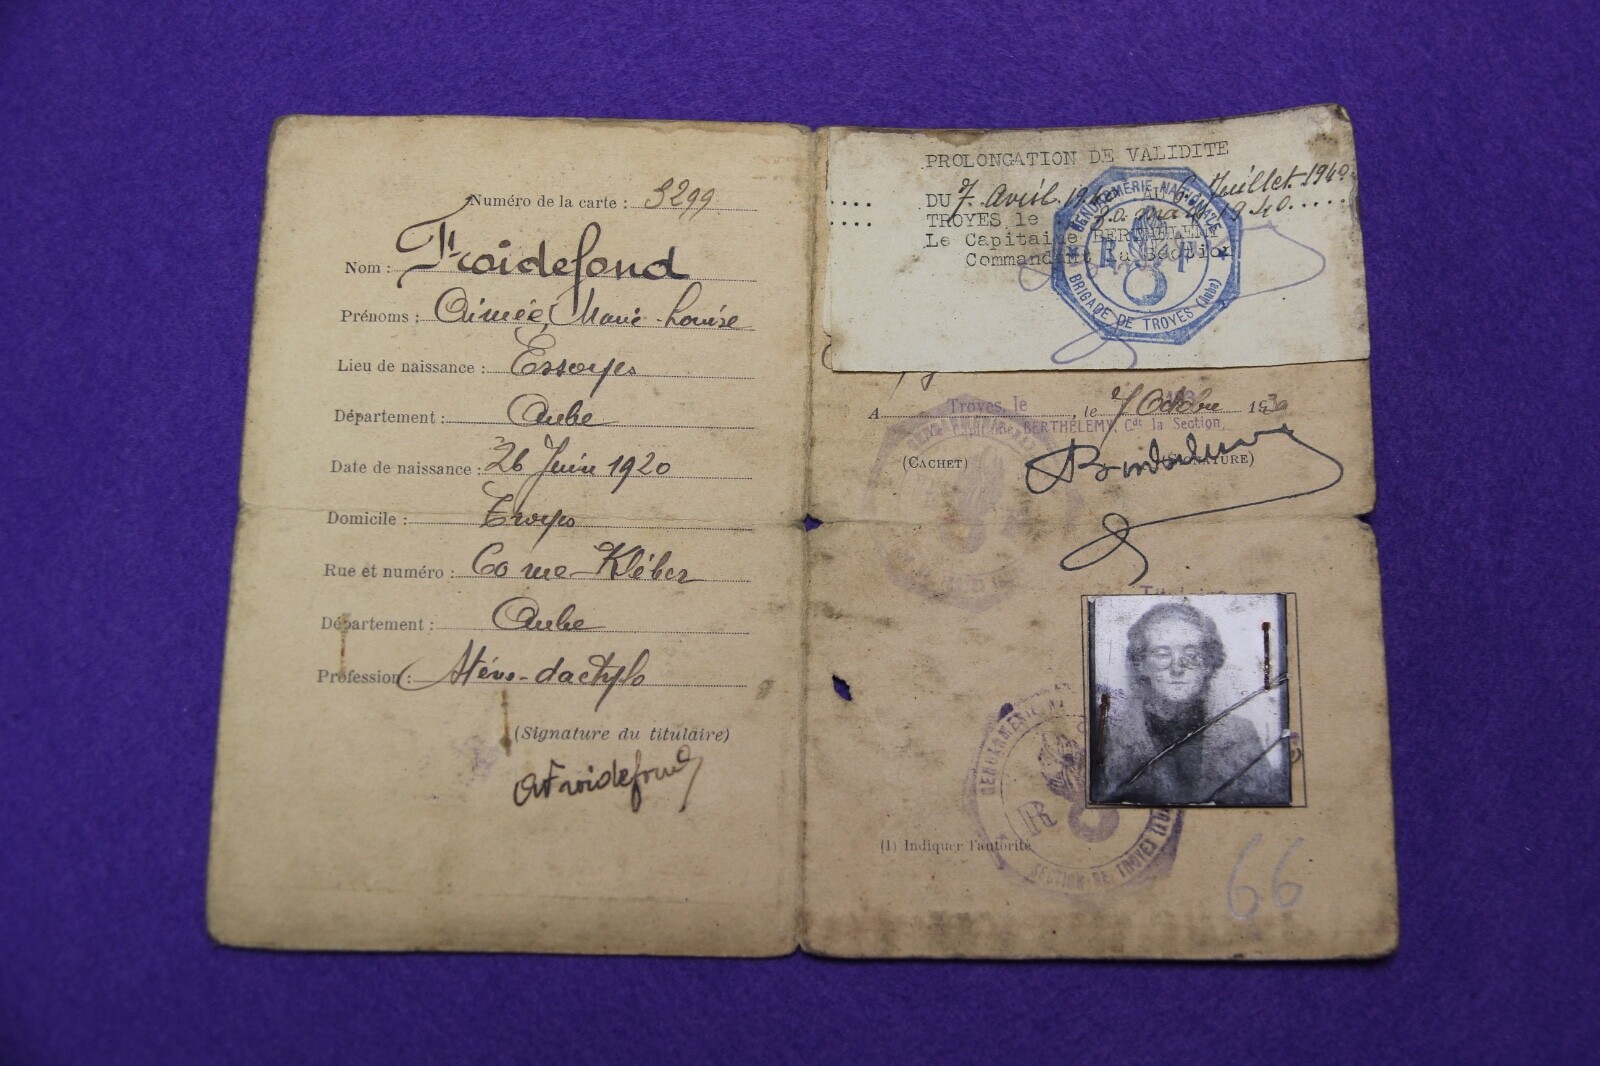 Numéro de la carte : 3299
Nom : Froidefond
Prénoms : Aimée, Marie Louise
Lieu de naissance : Essoyes
Département : Aube
Date de naissance : 26 Juin 1920
Domicile : Troyes
Rue et numéro : 60 rue Kléber
Département : Aube
Profession : Sténo-dactylo
(Signature du titulaire)
AFroidefond
PROLONGATION DE VALIDITE
DU 7 Avril 1940 AU 6 Juillet 1940
TROYES le 30 mars 1940
Le Capitaine BERTHELEMY
Commandant la Section
GENDARMERIE NATIONALE
BRIGADE DE TROYES (Aube)
A Troyes, le , le 7 Octobre 193
BERTHÉLEMY, Cdt la Section,
(CACHET)
(SIGNATURE)
GENDARMERIE
SECTION DE TROYES
(1) Indiquer l'autorité
66